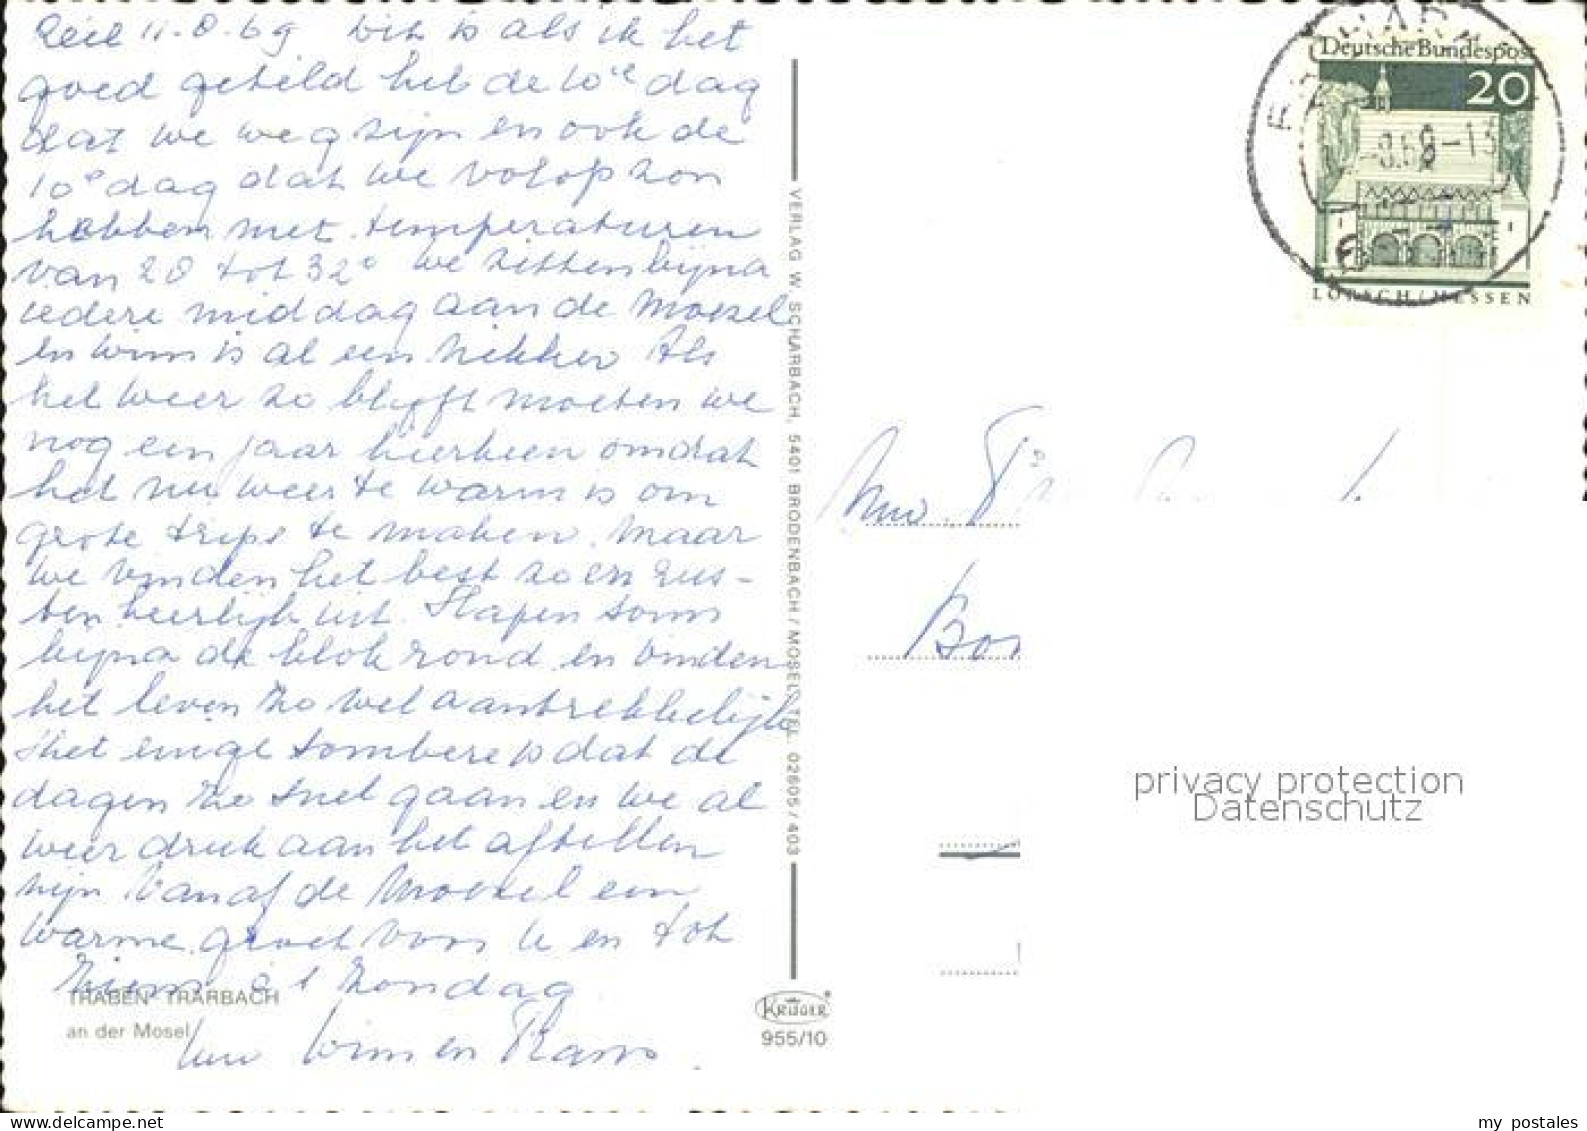 Reil 11-8-69 Dit is als ik het
goed geteld heb de 10e dag
dat we weg zijn en ook de
10e dag dat we volop zon
hebben met temperaturen
van 28 tot 32° we zitten bijna
iedere middag aan de Moezel
en Wim is al een nikker Als
het weer zo blijft moeten we
nog een jaar hierheen omdat
het nu weer te warm is om
grote trips te maken. Maar
we vinden het best zo en rus-
ten heerlijk uit. Slapen soms
bijna de klok rond en vinden
het leven zo wel aantrekkelijk
't het enige sombere is dat de
dagen zo snel gaan en we al
weer druk aan het aftellen
zijn Vanaf de Moezel een
warme groet voor U en tot
ziens Zondag
TRABEN-TRARBACH
an der Mosel
Uw Wim en
VERLAG W. SCHARBACH, 5401 BRODENBACH/MOSEL, TEL. 02605/403
KRÜGER
955/10
Deutsche Bundespost
20
LORSCH/HESSEN
privacy protection
Datenschutz
my postales